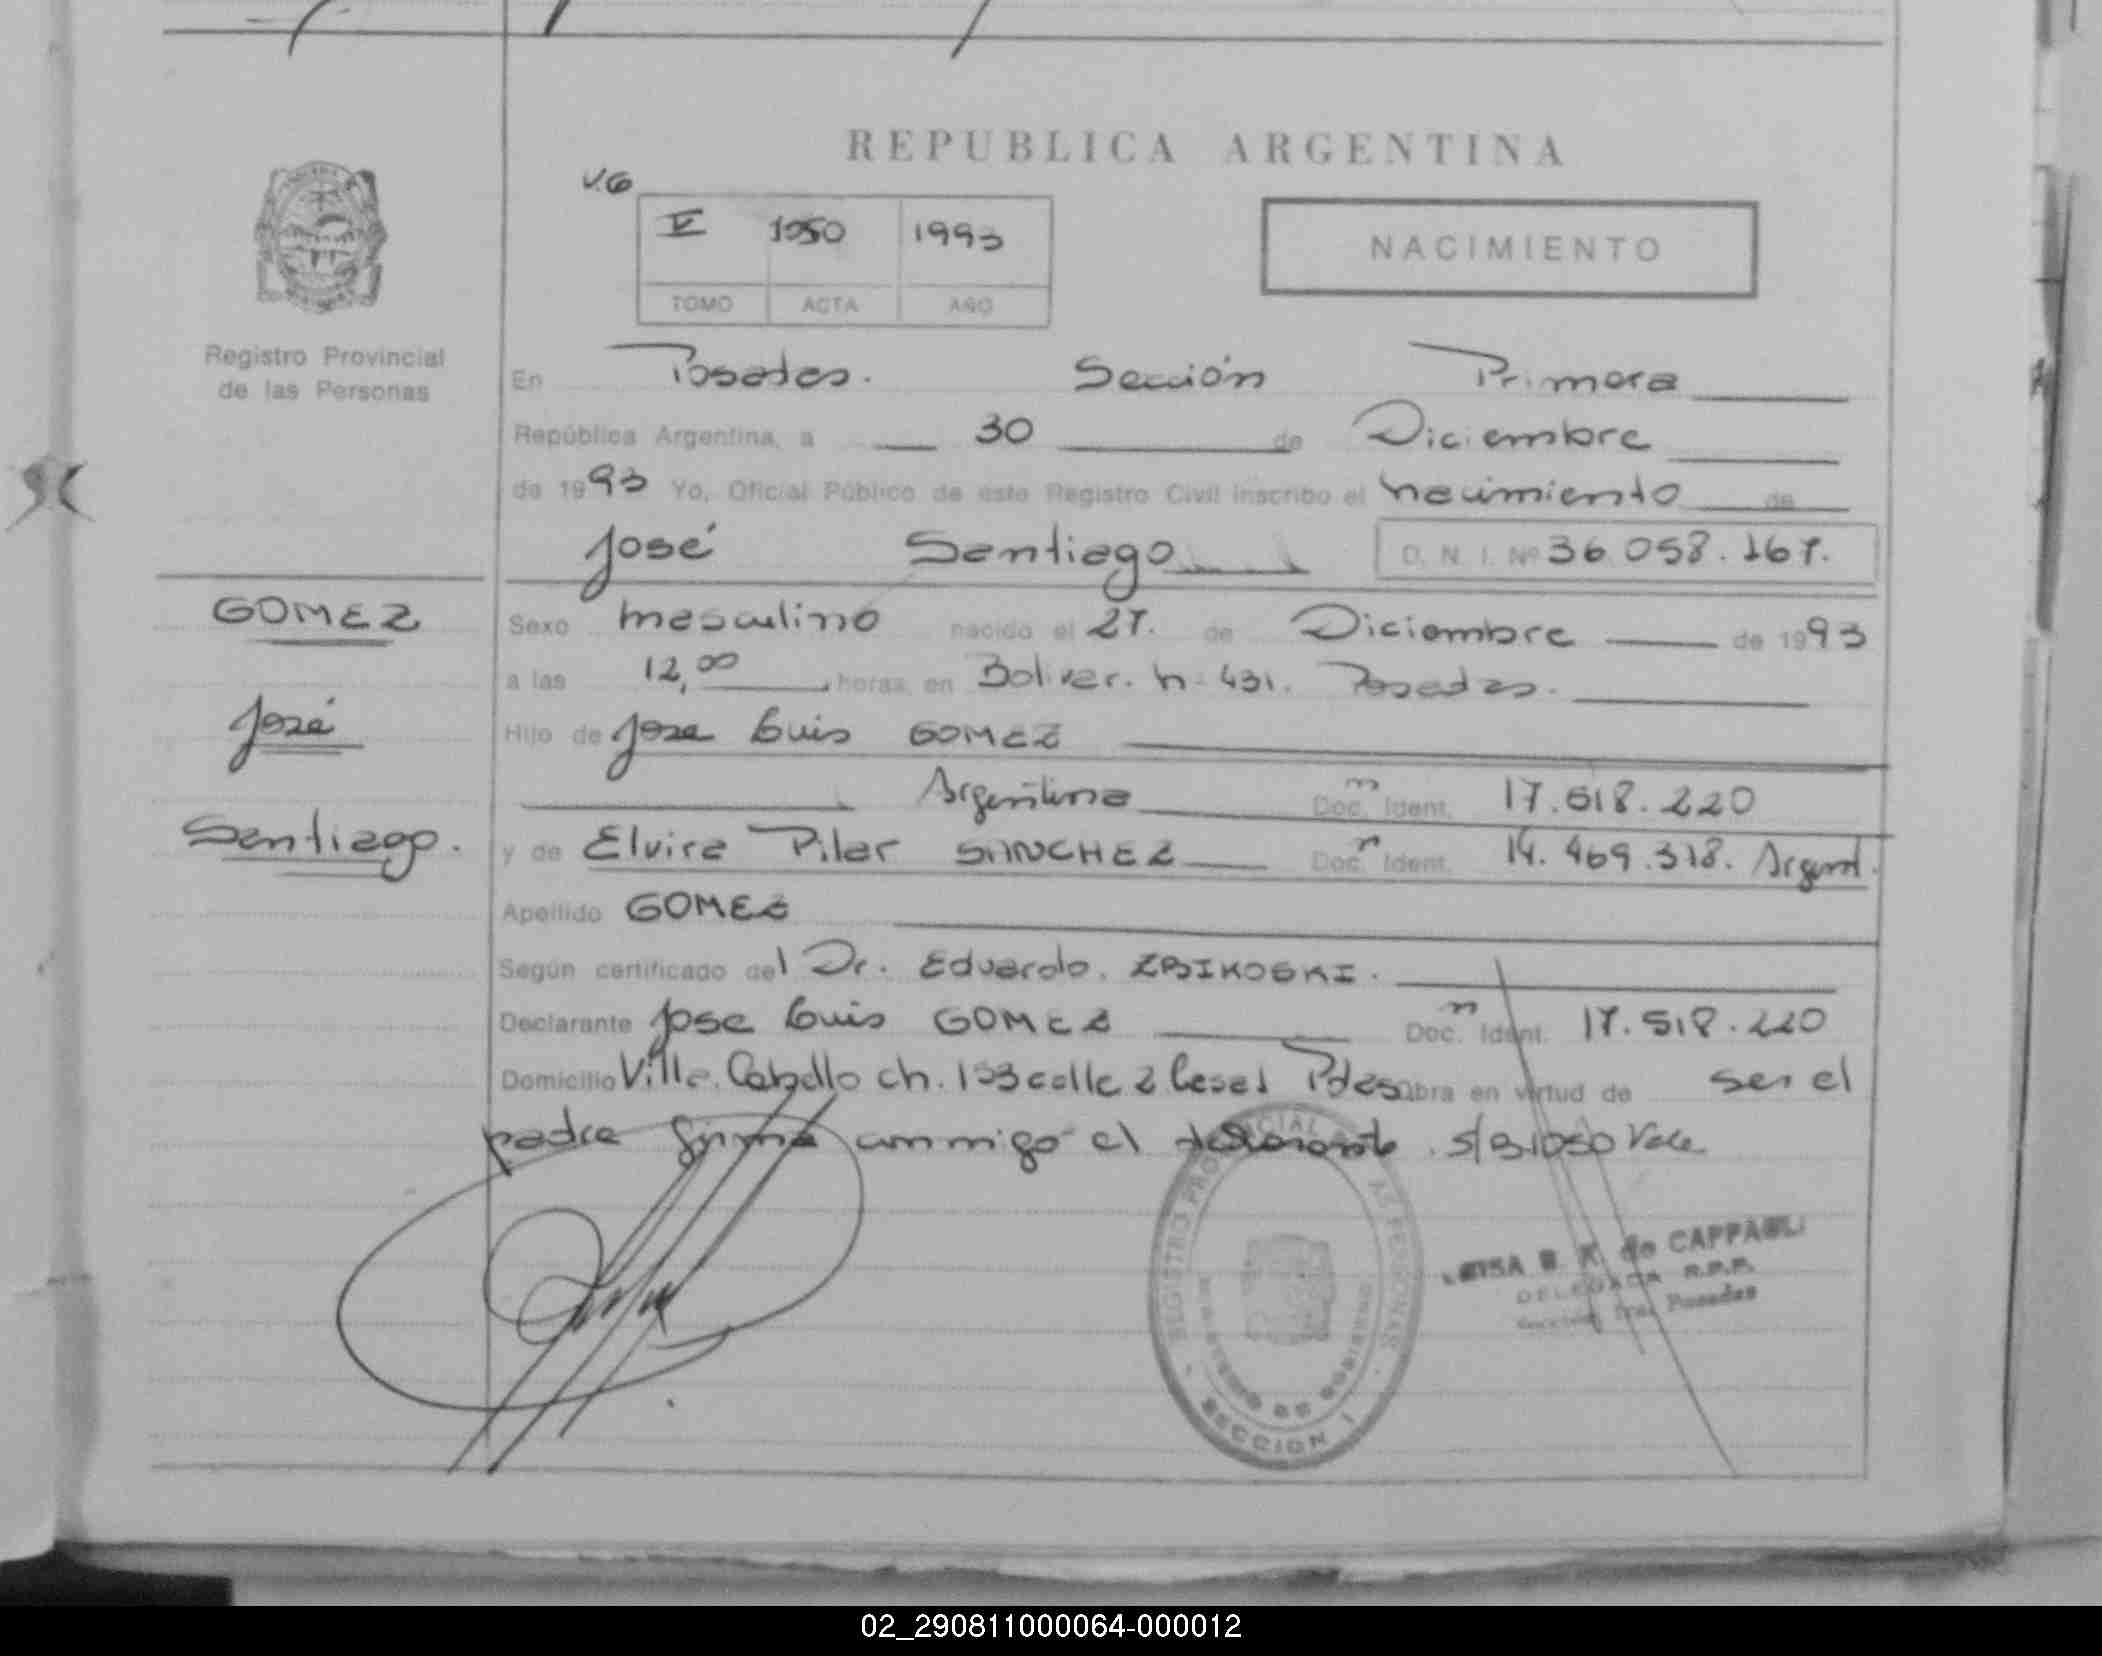 REPUBLICA ARGENTINA
V.G
V 1050 1993
TOMO ACTA AÑO
NACIMIENTO
Registro Provincial
de las Personas
En Posadas. Sección Primera
República Argentina, a 30 de Diciembre
de 1993 Yo, Oficial Público de este Registro Civil inscribo el nacimiento de
José Santiago D. N. I. Nº 36.058.167.
GOMEZ
José
Santiago.
Sexo masculino nacido el 27. de Diciembre de 1993
a las 12,00 horas, en Bolivar. n- 431. Posadas.
Hijo de Jose Luis GOMEZ
Argentina Doc. Ident. 17.518.220
y de Elvira Pilar SANCHEZ Doc. Ident. 14.469.318. Argent.
Apellido GOMEZ
Según certificado del Dr. Eduardo. ZBIKOSKI.
Declarante Jose Luis GOMEZ Doc. Ident. 17.518.220
Domicilio Villa Cabello ch. 133 calle 2 Pdas Obra en virtud de ser el
padre firma conmigo el declarante. S/B.1050 Vale
REGISTRO PROVINCIAL DE LAS PERSONAS
MINISTERIO DE GOBIERNO
SECCION I
de CAPPAGLI
DELEGADA R.P.P.
Sección 1ra. Posadas
02_290811000064-000012